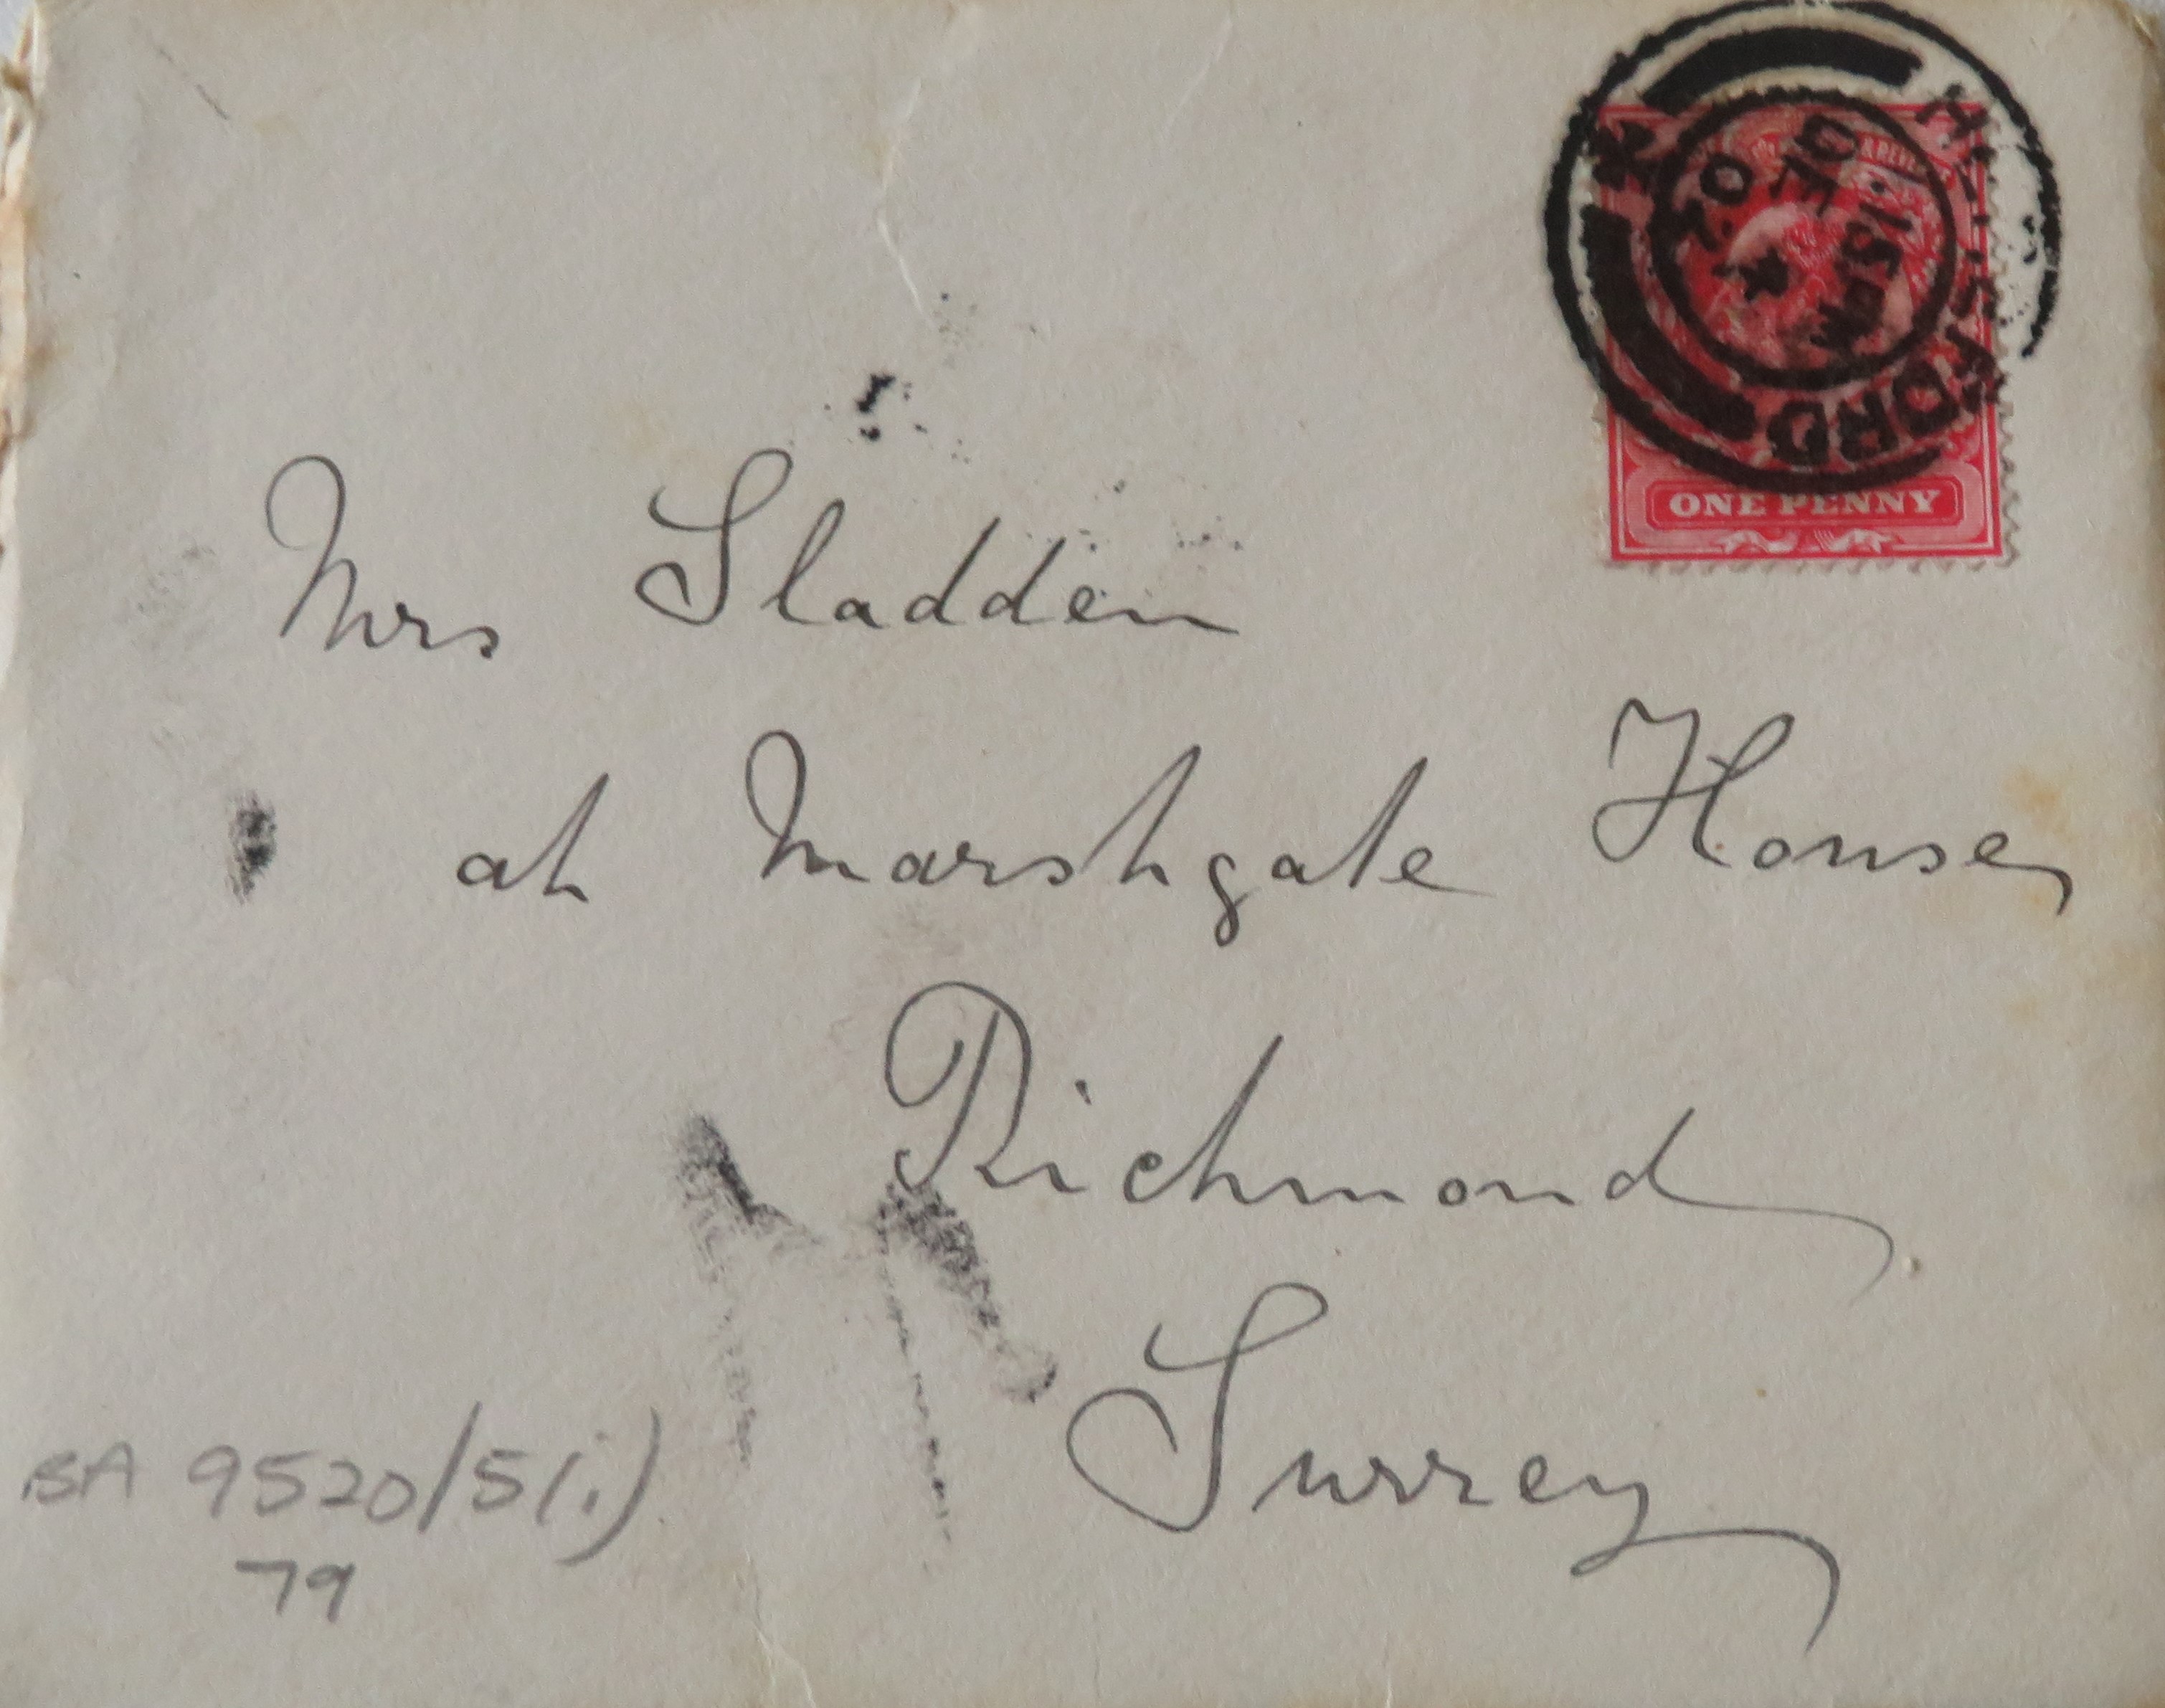 ONE PENNY
Mrs Sladden
at Marshgate House,
Richmond
Surrey
BA 9520/5(i)
79